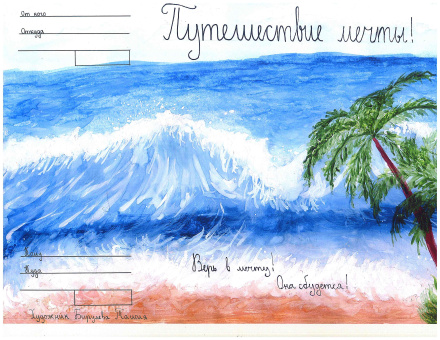 От кого
Откуда
Путешествие мечты!
Кому
Куда
Верь в мечту!
Она сбудется!
Художник